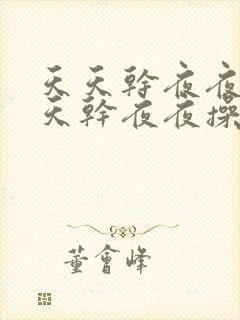 天天幹夜夜
天幹夜夜操
董會峰